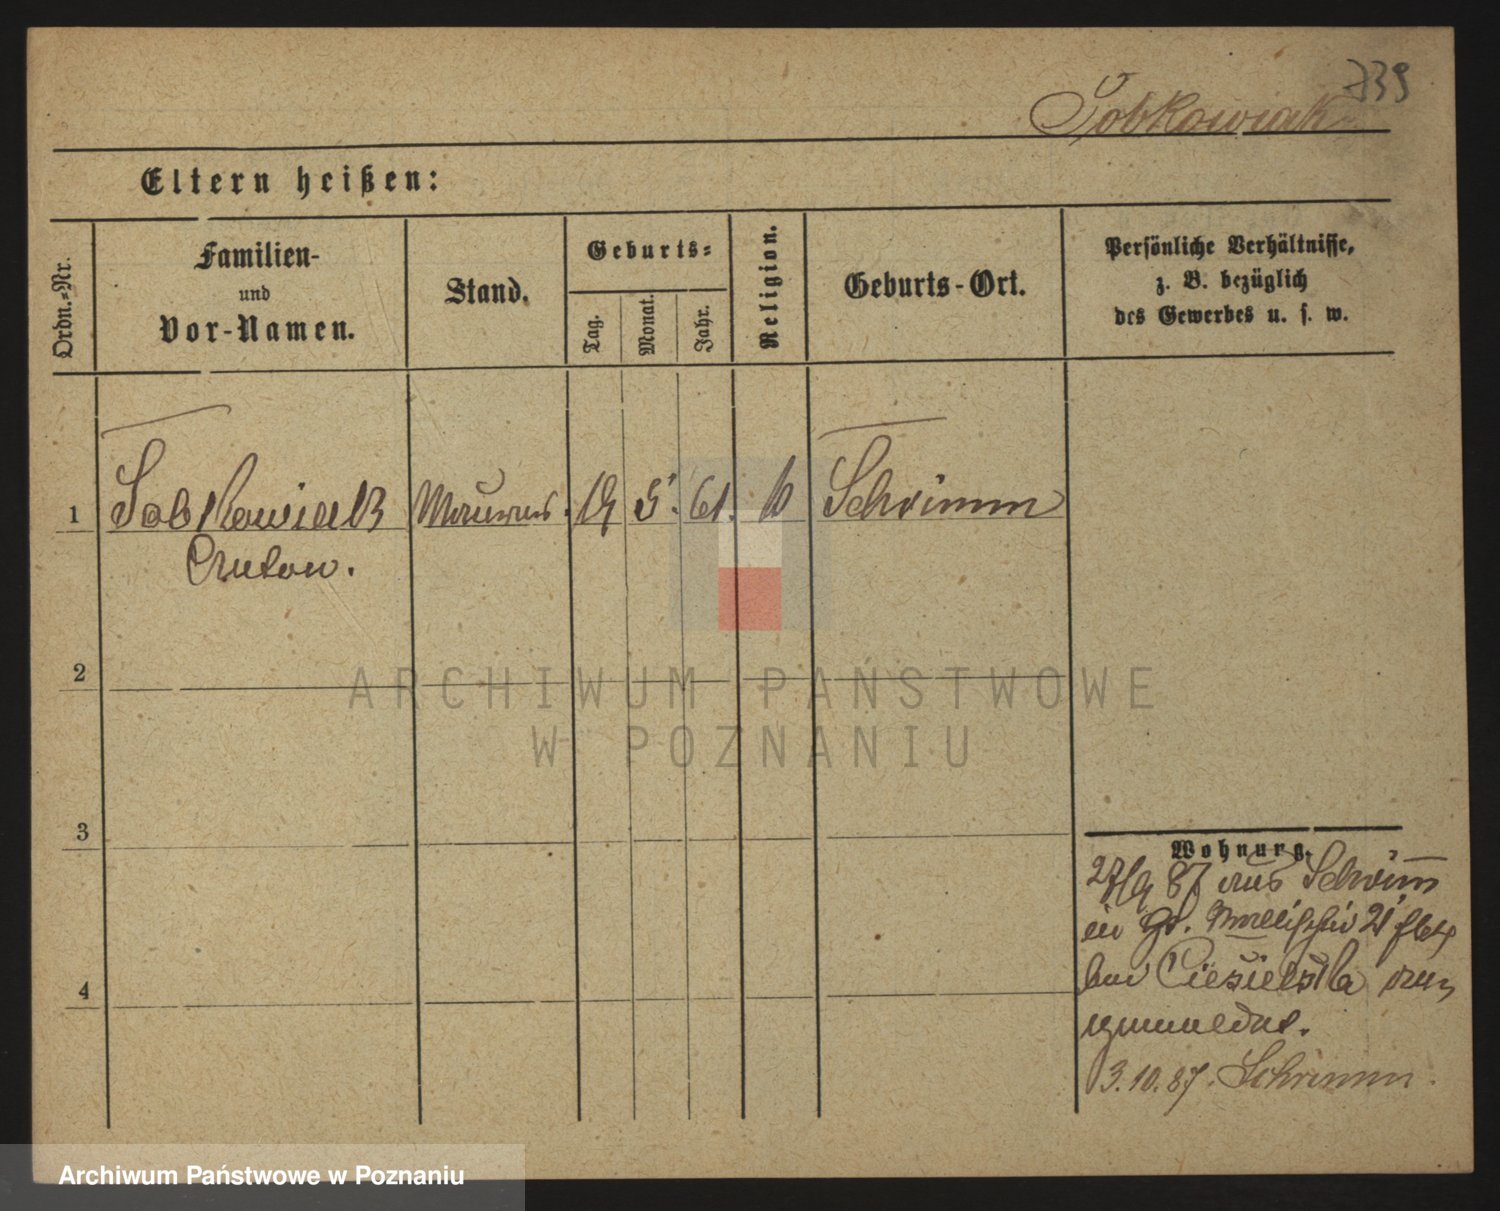 739
Sobkowiak
Eltern heißen:
Ordn.-Nr.
Familien-
und
Vor-Namen.
Stand.
Geburts-
Tag.
Monat.
Jahr.
Religion.
Geburts-Ort.
Persönliche Verhältnisse,
z. B. bezüglich
des Gewerbes u. s. w.
1 Sobkowiak Maurer 5. 61. k Schrimm
Anton.
2
3
4
Wohnung.
27/9 87 aus Schrim
in Gr.
bei an
gemeldet.
3.10.87. Schrimm.
ARCHIWUM PAŃSTWOWE
W POZNANIU
Archiwum Państwowe w Poznaniu